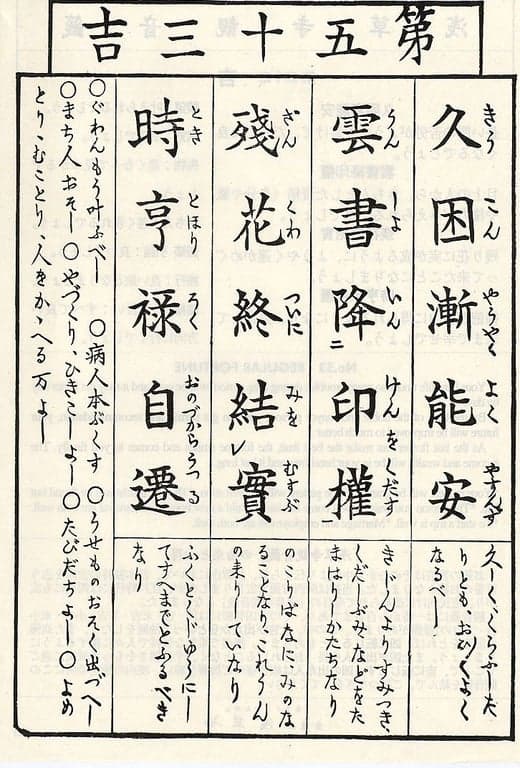 第五十三吉
久困漸能安
きう こん やうやく よく やすん
久しく、くらふした
りとも、おひ〳〵よく
なるべし
雲書降ニ印權
うん しよ いん けんをくだす
きしんよりすみつき、
くだしぶみなどをた
まはりしかたちなり
殘花終結レ實
ざん くわ ついに みを むすぶ
のこりばなに、みのな
ることなりこれうん
の来りていなり
時亨禄自遷
とき とほり ろく おのづからうつる
ふくとくじゆうにし
てすへまでとふるべき
なり
〇ぐわんもうかなふべし 〇病人本ぶくす 〇うせものおそく出づべし
〇まち人おそし〇やづくりひきこしよし〇たびだちよし〇よめ
とりむことり、人をかゝへる万よし